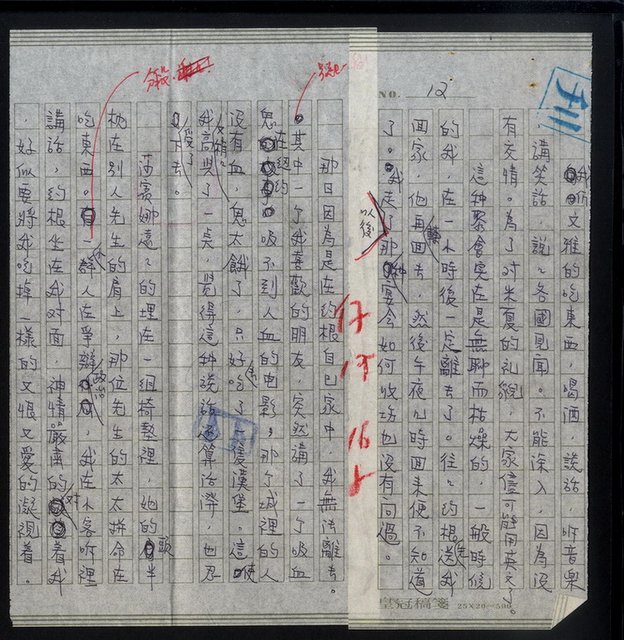 NO. 12
我們文雅的吃東西，喝酒，談話，听音樂
講笑話，說說各國見聞。不能深入，因為沒
有交情。為了对米夏的礼貌，大家儘可能用英文了。
這种聚會实在是無聊而枯燥的，一般時候
的我，在一小時後一定離去了。往往約根送我
回家，他再轉回去，然後午夜几時回来便不知道
了。我走了那种宴会如何收場也沒有问過。
以後
那日因為是在約根自己家中，我無法離去。
其中一个我喜歡的朋友，突然講了一个吸血
鬼在紐約吸不到人血的电影，那个城裡的人
沒有血，鬼太餓了，只好吃了隻漢堡。這使
我高興了一点，覺得這种說話還算活潑，也忍
受了下去。
莎賓娜遠遠的埋在一組椅墊裡，她的頭半
枕在別人先生的肩上，那位先生的太太拼命在
吃東西。一人在爭辯政治，我在小客听裡
講話，約根坐在我对面，神情嚴肅的对着我
，好似要將我吃掉一樣的又恨又愛的凝視着。
皇冠稿箋 25X20=500